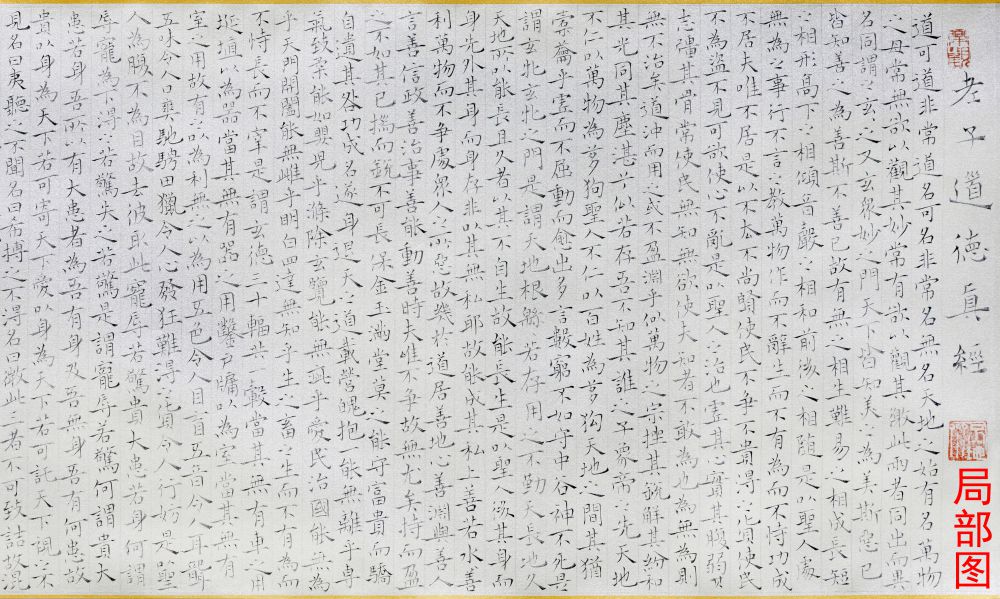 老子道德真經
道可道非常道名可名非常名無名天地之始有名萬物
之母常無欲以觀其妙常有欲以觀其徼此兩者同出而異
名同謂之玄玄之又玄衆妙之門天下皆知美之為美斯惡已
皆知善之為善斯不善已故有無之相生難易之相成長短
之相形高下之相傾音聲之相和前後之相隨是以聖人處
無為之事行不言之教萬物作而不辭生而不有為而不恃功成
不居夫唯不居是以不去不尚賢使民不爭不貴得之貨使民
不為盜不見可欲使心不亂是以聖人之治也虛其心實其腹弱其
志彊其骨常使民無知無欲使夫知者不敢為也為無為則
無不治矣道沖而用之或不盈淵乎似萬物之宗挫其銳解其紛和
其光同其塵湛兮似若存吾不知其誰之子象帝之先天地
不仁以萬物為芻狗聖人不仁以百姓為芻狗天地之間其猶
橐籥乎虛而不屈動而愈出多言數窮不如守中谷神不死是
謂玄牝玄牝之門是謂天地根緜緜若存用之不勤天長地久
天地所以能長且久者以其不自生故能長生是以聖人後其身而
身先外其身而身存非以其無私耶故能成其私上善若水水善
利萬物而不爭處衆人之所惡故幾於道居善地心善淵與善人
言善信政善治事善能動善時夫唯不爭故無尤矣持而盈
之不如其已揣而銳不可長保金玉滿堂莫之能守富貴而驕
自遺其咎功成名遂身退天之道載營魄抱一能無離乎專
氣致柔能如嬰兒乎滌除玄覽能無疵乎愛民治國能無為
乎天門開闔能無雌乎明白四達無知乎生之畜之生而不有為而
不恃長而不宰是謂玄德三十輻共一轂當其無有車之用
埏埴以為器當其無有器之用鑿户牖以為室當其無有
室之用故有之以為利無之以為用五色令人目盲五音令人耳聾
五味令人口爽馳騁田獵令人心發狂難得之貨令人行妨是以聖
人為腹不為目故去彼取此寵辱若驚貴大患若身何謂
辱寵為下得之若驚失之若驚是謂寵辱若驚何謂貴大
患若身吾所以有大患者為吾有身及吾無身吾有何患故
貴以身為天下若可寄天下愛以身為天下若可託天下視之不
見名曰夷聽之不聞名曰希搏之不得名曰微此三者不可致詰故混
局部图